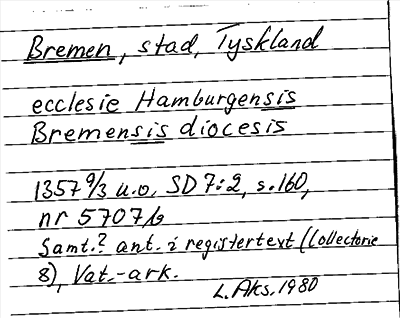 Bremen, stad, Tyskland
ecclesie Hamburgensis
Bremensis diocesis
1357 9/3 u.o. SD 7:2, s.160,
nr 5707/b
Samt.? ant. i registertext (Collectorie
8), Vat.-ark.
L. Aks. 1980